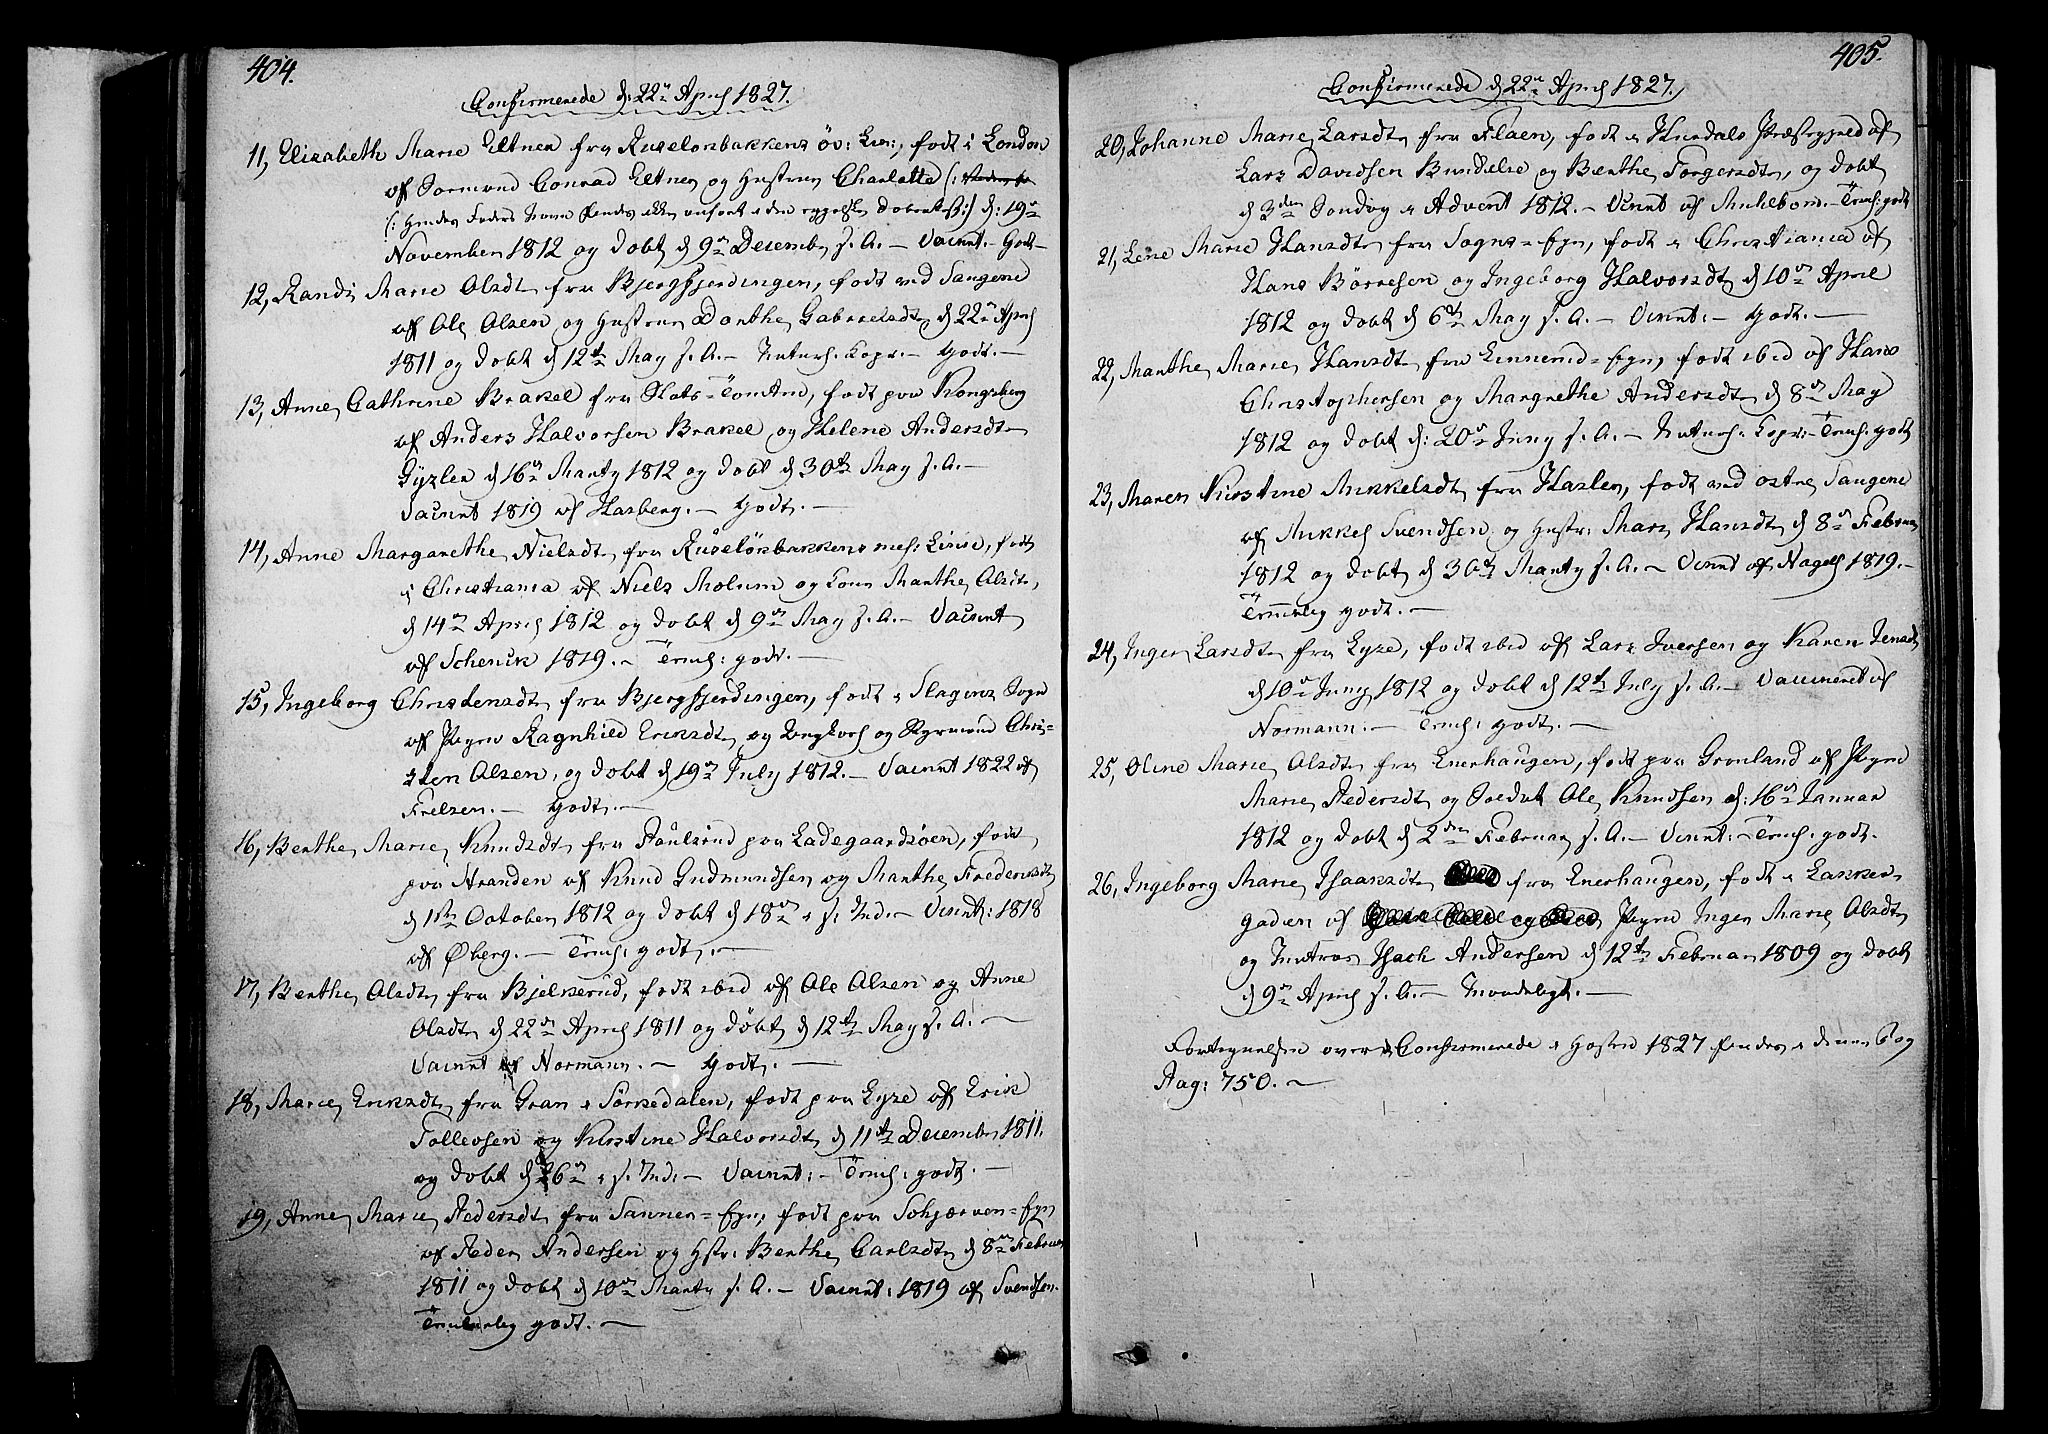 404.
Confirmerede d: 22de April 1827.
11, Elisabeth Marie Eltner fra Ruseløsbakkens øv: Lin:, født i London
af Formand Conrad Eltner og Hustrue Charlotte
(: Hendes Faders Navn findes ikke anført i den Døbeattest :) d: 19de
November 1812 og døbt d 9de Decembr s. A. – Vaccint. – Godt –
12, Randi Marie Olsdtr fra Bjergfjerdingen, født ved Saugene
af Ole Olsen og Hustrue Dorthe Gabrielsdtr d 22de April
1811 og døbt d 12te May s. A. – Naturl: Kopr. – Godt. –
13, Anne Cathrine Brakel fra Slots-Tomten, født paa Kongsberg
af Anders Halvorsen Brakel og Helene Andersdtr
Gyzler d 16de Marty 1812 og døbt d 30te May s. A. –
Vaccint 1819 af Hasberg. – Godt. –
14, Anne Margarethe Nielsdtr fra Ruseløsbakkens mel: Linie, født
i Christiania af Niels Molum og Kone Marthe Olsdtr,
d 14de April 1812 og døbt d 9de May s. A. – Vaccint
af Schenck 1819. – Temel: godt. –
15, Ingeborg Christensdtr fra Bjergfjerdingen, født i Slagens Sogn
af Pigen Ragnhild Eriksdtr og Ungkarl og Styrmand Chri-
sten Olsen, og døbt d 19de July 1812. – Vaccint 1822 af
Frelsen. – Godt. –
16, Berthe Marie Knudsdtr fra Paulsrud paa Ladegaardsøen, født
paa Stranden af Knud Gudmundsen og Marthe Frederiksdtr
d 1ste October 1812 og døbt d 18de i s. Md. – Vaccint: 1818
af Øberg. – Temel: godt. –
17, Berthe Olsdtr fra Bjelkerud, født ibid af Ole Olsen og Anne
Olsdtr d 22de April 1811 og døbt d 12te May s. A. –
Vaccint af Normann. – Godt. –
18, Marie Eriksdtr fra Gran i Sørkedalen, født paa Lyse af Erik
Tollevsen og Kirstine Halvorsdtr d 11te Decembr 1811
og døbt d 26de i s. Md: – Vaccint: – Temel: godt. –
19, Anne Marie Pedersdtr fra Sanner-Egn, født paa Sohjærven-Egn
af Peder Andersen og Hstr: Berthe Carlsdtr d 8de Februar
1811 og døbt d 10de Marty s. A. – Vaccint: 1819 af Svendsen.
Temmelig godt. –
405.
Confirmerede d 22de April 1827.
20, Johanne Marie Larsdtr fra Flaen, født i Hurdals Præstegjeld af
Lars Davidsen Bundelie og Berthe Torgersdtr, og døbt
d 3die Søndag i Advent 1812. – Vaccint af Mikkelbom. – Temel: godt
21, Lene Marie Hansdtr fra Sogns-Egn, født i Christiania af
Hans Børresen og Ingeborg Halvorsdtr d 10de April
1812 og døbt d 6te May s. A. – Vaccint: – Godt. –
22, Marthe Marie Hansdtr fra Linnerud-Egn, født ibid af Hans
Christophersen og Margrethe Andersdtr d 8de May
1812 og døbt d: 20de Juny s. A. – Naturl: Kopr: – Temel: godt
23, Maren Kirstine Mikkelsdtr fra Haslen, født ved østre Saugene
af Mikkel Svendsen og Hustr: Mari Hansdtr d 8de Februar
1812 og døbt d 30te Marty s. A. – Vaccint af Nagell 1819. –
Temmelig godt. –
24, Inger Larsdtr fra Lyse, født ibid af Lars Iversen og Karen Jensdtr
d 10de Juny 1812 og døbt d 12te July s. A. – Vaccineret af
Normann. – Temel: godt. –
25, Oline Marie Olsdtr fra Enerhaugen, født paa Grønland af Pigen
Marie Pedersdtr og Soldat Ole Knudsen d: 16de Januar
1812 og døbt d 2den Februar s. A. – Vaccint: – Temel: godt.
26, Ingeborg Marie Isaaksdtr fra Enerhaugen, født i Lakker-
gaden af Pigen Inger Marie Olsdtr
og Matros Isach Andersen d 12te Februar 1809 og døbt
d 9de April s. A. – Maadeligt. –
Fortegnelsen over Confirmerede i Høsten 1827 findes i denne Bog
Pag: 750. –